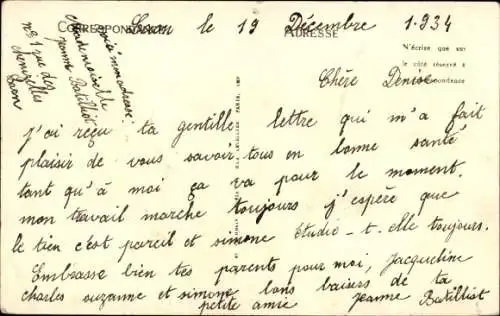 CORRESPONDANCE
ADRESSE
Laon le 19 Décembre 1.934
N'écrire que sur
le côté réservé à
Voici mon adresse
Mademoiselle
Jeanne Batilliot
n° 1 rue des
chenizelles
Laon
Chère Denise
j'ai reçu ta gentille lettre qui m'a fait
plaisir de vous savoir tous en bonne santé
tant qu'à moi ça va pour le moment.
mon travail marche toujours j'espère que
le tien c'est pareil et simone Etudie-t-elle toujours.
Embrasse bien tes parents pour moi, Jacqueline
charles suzanne et simone bons baisers de ta
petite amie Jeanne Batilliot